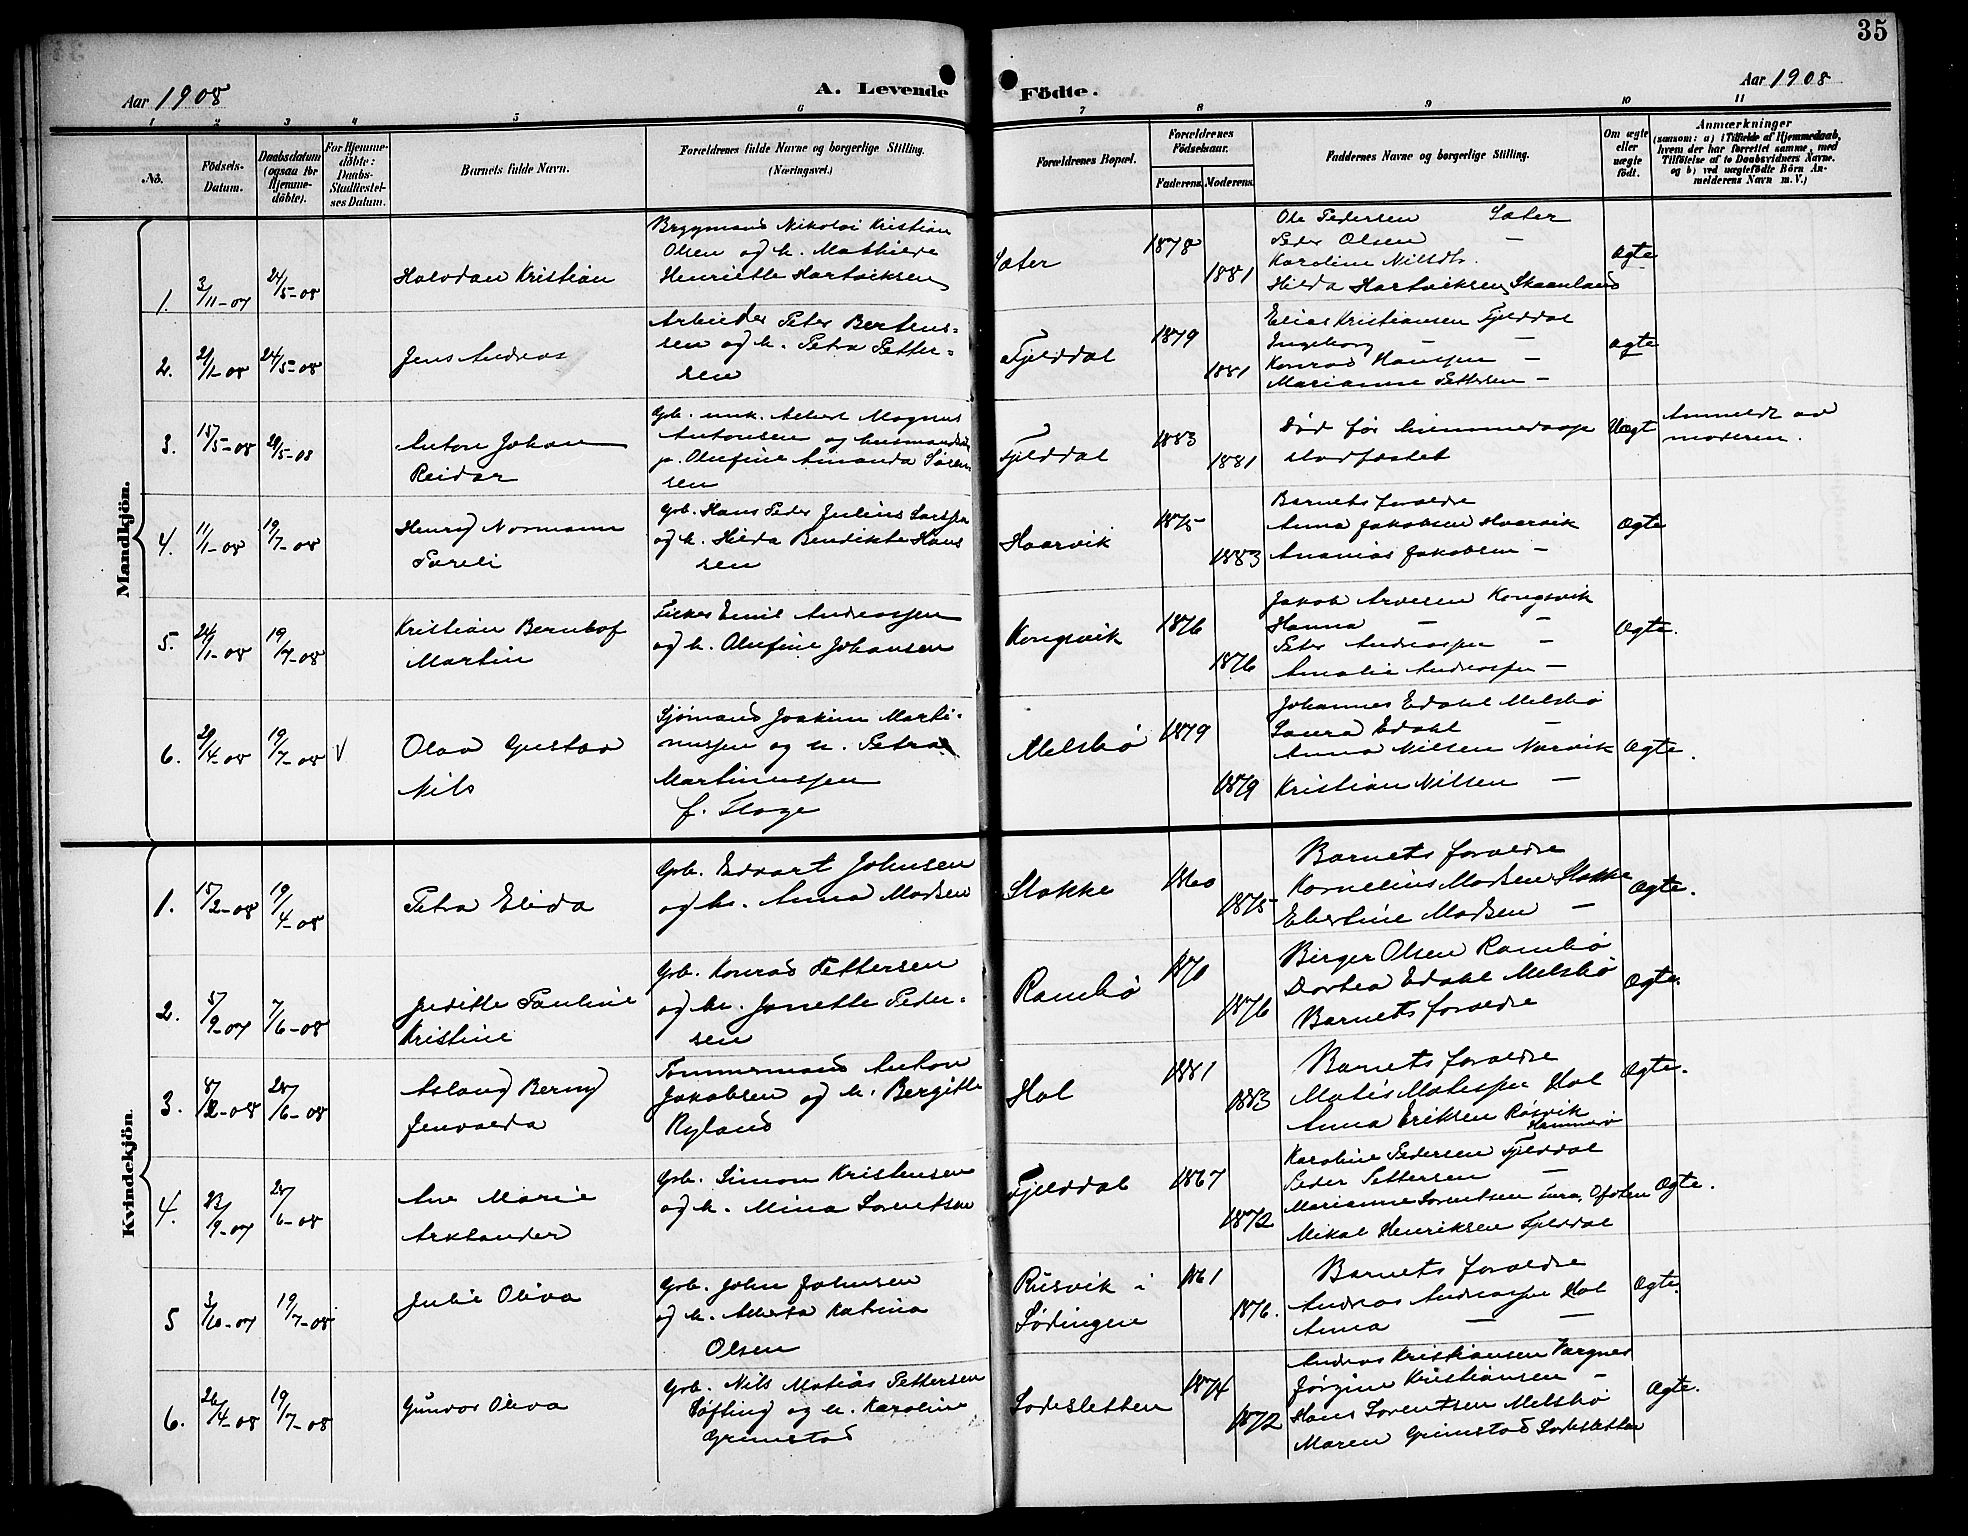 35
Aar 1908
A. Levende Födte.
Aar 1908
1 2 3 4 5 6 7 8 9 10 11
No.
Födsels-
Datum.
Daabsdatum
(ogsaa for
Hjemme-
döbte).
For Hjemme-
döbte:
Daabs-
Stadfæstel-
ses Datum.
Barnets fulde Navn.
Forældrenes fulde Navne og borgerlige Stilling.
(Næringsvei.)
Forældrenes Bopæl.
Forældrenes
Födselsaar.
Faderens.
Moderens.
Faddernes Navne og borgerlige Stilling.
Om ægte
eller
uægte
født.
Anmærkninger
(saasom: a) i Tilfælde af Hjemmedaab,
hvem der har forrettet samme, med
Tilföielse af to Daabsvidners Navne.
og b) ved uægtefödte Börn An-
melderens Navn m. V.)
Mandkjön.
1.
3/11-07
24/5-08
Halvdan Kristian
Brygmand Nikolai Kristian
Olsen og h. Mathilde
Henriette Hartviksen
Sæter
1878
1881
Ole Pedersen Sæter
Peder Olsen —
Karoline Nilsdtr.
Hilda Hartviksen, Skaanland
Ægte
2.
21/1-08
24/5-08
Jens Andreas
Arbeider Peter Bertens-
sen og h. Petra Petter-
sen
Fjelddal
1879
1881
Elias Kristiansen Fjelddal
Ingeborg — —
Konrad Hanssen —
Marianne Pettersen —
ægte
3.
15/5-08
29/5-08
Anton Johan
Reidar
Gb. unk. Albert Magnus
Antonsen og husmandsd.
p. Olufine Amanda Søren-
sen
Fjelddal
1883
1881
Død før hjemmedaap
stadfæstet
Uægt
Anmeldt av
moderen.
4.
11/1-08
19/7-08
Henry Normann
Sareli
Gb. Hans Peder Julius Larssen
og h. Hilda Bendikte Han
sen
Haarvik
1875
1883
Barnets foreldre
Anna Jakobsen Haarvik
Ananias Jakobsen —
Ægte
5.
24/1-08
19/7-08
Kristian Bernhof
Martin
Fisker Emil Andreassen
og h. Olufine Johansen
Kongsvik
1876
1876
Jakob Arvesen Kongsvik
Hanna — —
Peter Andreassen —
Amalie Andreassen —
Ægte.
6.
29/4-08
19/7-08
V
Olav Gustav
Nils
Sjømand Joakim Marti-
nussen og h. Petra
Martinussen
f. Floge
Melsbø
1879
1879
Johannes Edahl Melsbø
Laura Edahl —
Anna Nilsen Narvik
Kristian Nilsen —
Ægte.
Kvindekjön.
1.
15/2-08
19/4-08
Petra Elida
Gb. Edvart Johnsen
og h. Anna Madsen
Slakke
1860
1875
Barnets foreldre
Kornelius Madsen Slakke
Ebertine Madsen —
Ægte.
2.
5/9-07
7/6-08
Juditte Pauline
Kristine
Gb. Konrad Pettersen
og h. Janette Peder-
sen
Rambø
1870
1876
Birger Olsen Rambø
Dortea Edahl Melsbø
Barnets foreldre
Ægte.
3.
28/6-08
Aslaug Berny
Jenvalda
Tømmermand Anton
Jakobsen og h. Bergitte
Ryland
Hol
1881
1883
Barnets foreldre
Matis Matissen Hol
Anna Eriksen Røsvik
Hammerø
Ægte.
4.
23/9-07
28/6-08
Ane Marie
Arklander
Gb. Simon Kristensen
og h. Mina Lorentsen
Fjelddal
1867
1872
Karoline Pedersen Fjelddal
Peder Pettersen —
Marianne Lorentsen Ofoten
Mikal Henriksen Fjelddal
Ægte.
5
3/10-07
19/7-08
Julie Oliva
Gb. John Johnsen
og h. Alberta Katrina
Olsen
Rusvik i
Lødingen
1861
1876.
Barnets foreldre
Andreas Andreassen Hol
Anna — —
Ægte.
6.
26/4-08
19/7-08
Gunvor Oliva
Gb. Nils Matias Pettersen
Løfting og h. Karoline
Grimstad
Sandesletten
1874
1872
Andreas Kristiansen Vargnes
Jørgine Kristiansen —
Hans Lorentsen Melsbø
Maren Grimstad Sandesletten
Ægte.